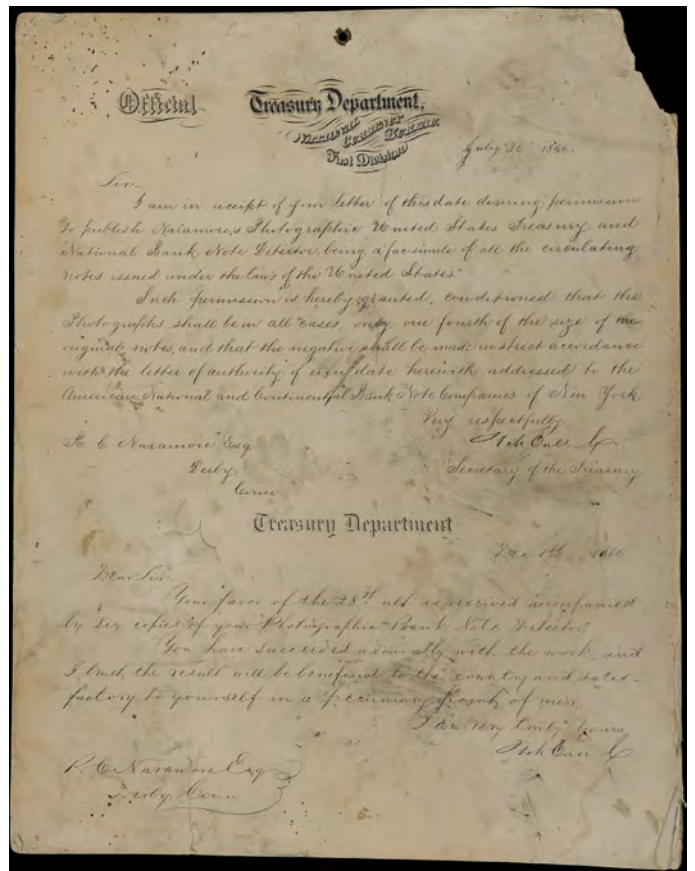 Official
Treasury Department,
National Currency Bureau
First Division
July 30th 1866.
Sir
I am in receipt of your letter of this date desiring permission
to publish Naramore's Photographic United States Treasury and
National Bank Note Detector, being a facsimile of all the circulating
notes issued under the laws of the United States"
Such permission is hereby granted, conditioned that the
Photographs shall be in all cases, only one fourth of the size of the
original notes, and that the negative shall be made in strict accordance
with the letter of authority of even date herewith addressed to the
American, National and Continental Bank Note Companies of New York
Very respectfully
R C Naramore Esq
Derby
Conn
Secretary of the Treasury
Treasury Department
Dec 1st 1866
Dear Sir
Your favor of the 28th ult is received accompanied
by six copies of your "Photographic Bank Note Detector"
You have succeeded admirally with the work, and
I trust, the result will be beneficial to the country and satis-
factory to yourself in a pecuniary point of view.
I am very truly yours
R. C. Naramore Esq
Derby Conn